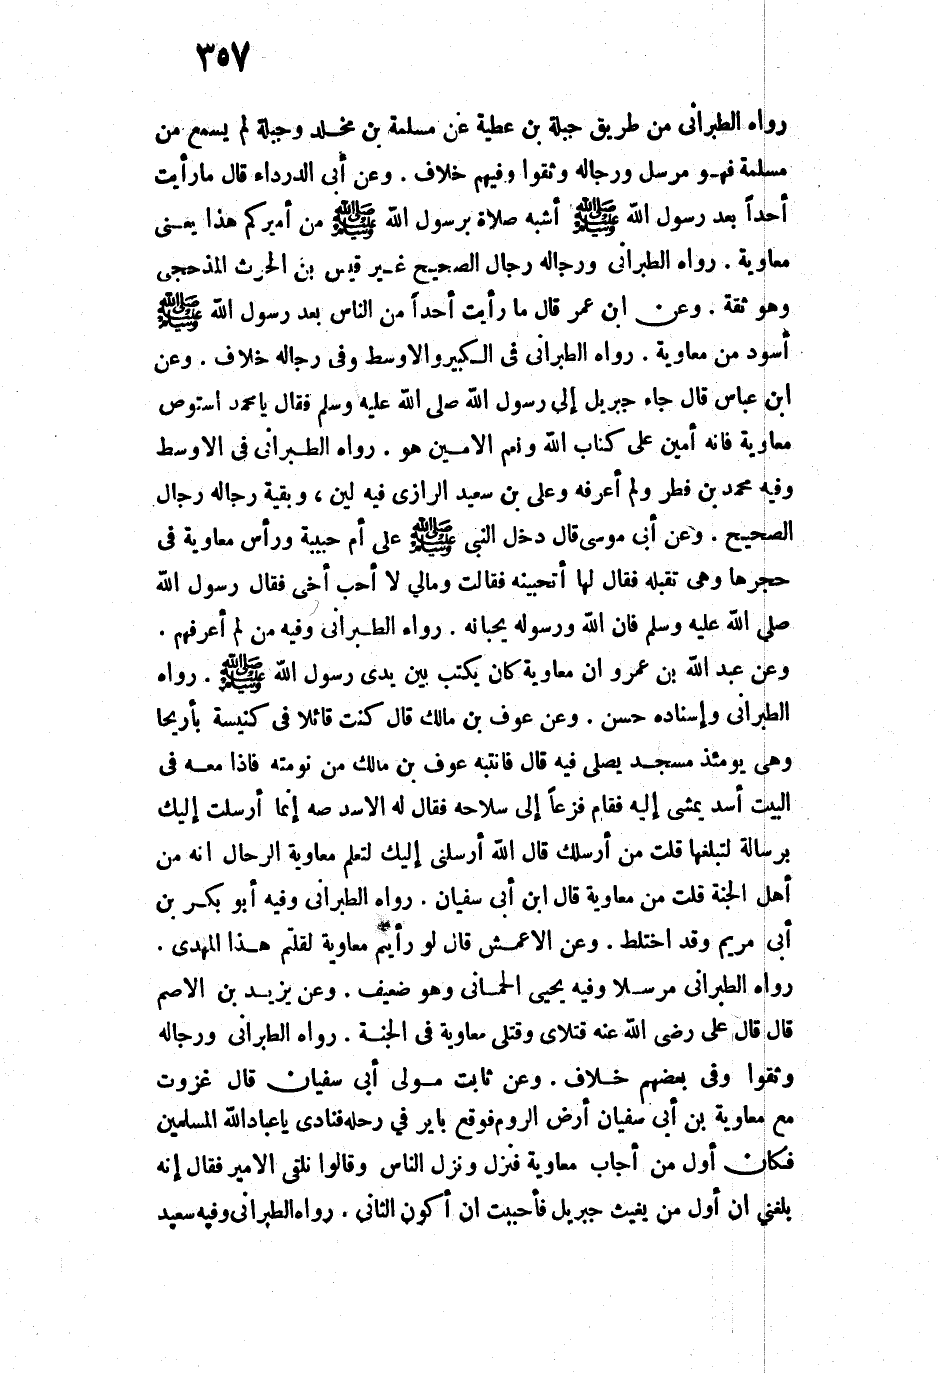 ٣٥٧
رواه الطبرانى من طريق جبلة بن عطية عن مسلمة بن مخلد وجبلة لم يسمع من
مسلمة فهو مرسل ورجاله وثقوا وفيهم خلاف . وعن أبى الدرداء قال مارأيت
أحداً بعد رسول الله ﷺ أشبه صلاة برسول الله ﷺ من أميركم هذا يعنى
معاوية . رواه الطبرانى ورجاله رجال الصحيح غير قيس بن الحرث المذحجى
وهو ثقة . وعن ابن عمر قال ما رأيت أحداً من الناس بعد رسول الله ﷺ
أسود من معاوية . رواه الطبرانى فى الكبير والاوسط وفى رجاله خلاف . وعن
ابن عباس قال جاء جبريل إلى رسول الله صلى الله عليه وسلم فقال يامحمد استوص
معاوية فانه أمين على كتاب الله ونعم الامين هو . رواه الطبرانى فى الاوسط
وفيه محمد بن فطر ولم أعرفه وعلى بن سعيد الرازى فيه لين ، وبقية رجاله رجال
الصحيح . وعن أبى موسى قال دخل النبى ﷺ على أم حبيبة ورأس معاوية فى
حجرها وهى تقبله فقال لها أتحبينه فقالت ومالي لا أحب أخى فقال رسول الله
صلي الله عليه وسلم فان الله ورسوله يحبانه . رواه الطبرانى وفيه من لم أعرفهم .
وعن عبد الله بن عمرو ان معاوية كان يكتب بين يدى رسول الله ﷺ . رواه
الطبرانى وإسناده حسن . وعن عوف بن مالك قال كنت قائلا فى كنيسة بأريحا
وهى يومئذ مسجد يصلى فيه قال فانتبه عوف بن مالك من نومته فاذا معه فى
البيت أسد يمشى إليه فقام فزعاً إلى سلاحه فقال له الاسد صه إنما أرسلت إليك
برسالة لتبلغها قلت من أرسلك قال الله أرسلنى إليك لتعلم معاوية الرحال انه من
أهل الجنة قلت من معاوية قال ابن أبى سفيان . رواه الطبرانى وفيه أبو بكر بن
أبى مريم وقد اختلط . وعن الاعمش قال لو رأيتم معاوية لقلتم هذا المهدى .
رواه الطبرانى مرسلا وفيه يحيى الحمانى وهو ضعيف . وعن يزيد بن الاصم
قال قال على رضى الله عنه قتلاى وقتلى معاوية فى الجنة . رواه الطبرانى ورجاله
وثقوا وفى بعضهم خلاف . وعن ثابت مولى أبى سفيان قال غزوت
مع معاوية بن أبى سفيان أرض الروم فوقع باير في رحله فنادى ياعباد الله المسلمين
فكان أول من أجاب معاوية فنزل ونزل الناس وقالوا نلقى الامير فقال إنه
بلغني ان أول من يغيث جبريل فأحببت ان أكون الثانى . رواه الطبرانى وفيه سعيد